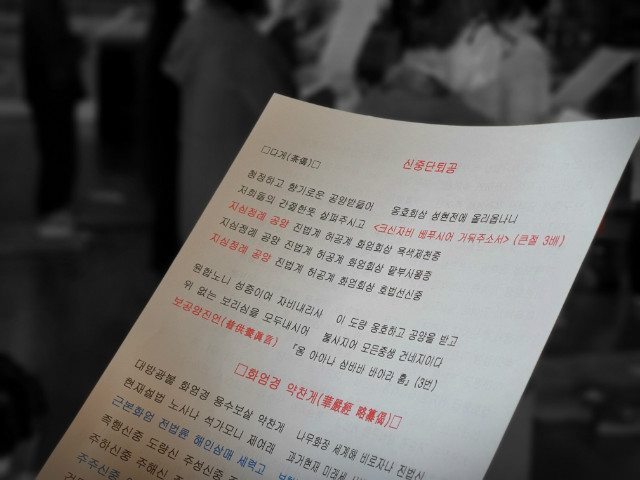 신중단퇴공
□다게(茶偈)□
청정하고 향기로운 공양받들어 옹호회상 성현전에 올리옵나니
저희들의 간절한뜻 살펴주시고 <크신자비 베푸시어 거둬주소서> (큰절 3배)
지심정례 공양 진법계 허공계 화엄회상 욕색제천중
지심정례 공양 진법계 허공계 화엄회상 팔부사왕중
지심정례 공양 진법계 허공계 화엄회상 호법선신중
원합노니 성중이여 자비내리사 이 도량 옹호하고 공양을 받고
위 없는 보리심을 모두내시어 불사지어 모든중생 건네지이다
보공양진언(普供養眞言) 『옴 아아나 삼바바 바아라 훔』(3번)
□화엄경 약찬게(華嚴經 略纂偈)□
대방광불 화엄경 용수보살 약찬게 나무화장 세계해 비로자나 진법신
현재설법 노사나 석가모니 제여래 과거현재 미래세
근본화엄 전법륜 해인삼매 세력고
족행신중 도량신 주성신중
주하신중 주해신
주주신중